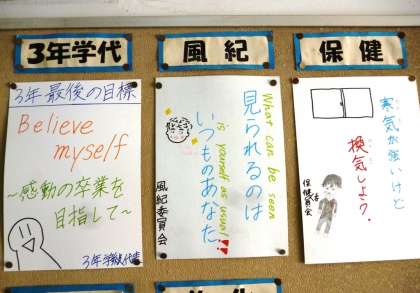 3年学代
3年 最後の目標
Believe
myself
～感動の卒業を
目指して～
3年学級代表
風紀
What can be seen
is yourself as usual!!
見られるのは
いつものあなた
風紀委員会
保健
寒気が強いけど
換気しよう?
保健委員会